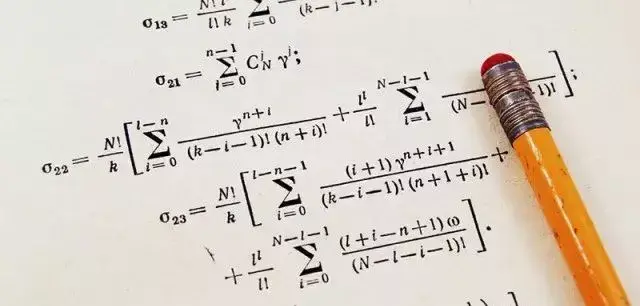 σ₁₃ = N! lˡ / l! k ∑ i=0 (k−i−1)!
σ₂₁ = ∑_{i=0}^{n−1} C_N^i γ^i;
σ₂₂ = N!/k [ ∑_{i=0}^{l−n} γ^{n+i} / (k−i−1)! (n+i)! + lˡ/l! ∑_{i=1}^{N−l−1} / (N− −1)! ];
σ₂₃ = N!/k [ ∑_{i=0}^{l−n−1} (i+1) γ^{n+i+1} / (k−i−1)! (n+1+i)! +
+ lˡ/l! ∑_{i=0}^{N−l−1} (l+i−n+1) ω / (N−l−i−1)! ].